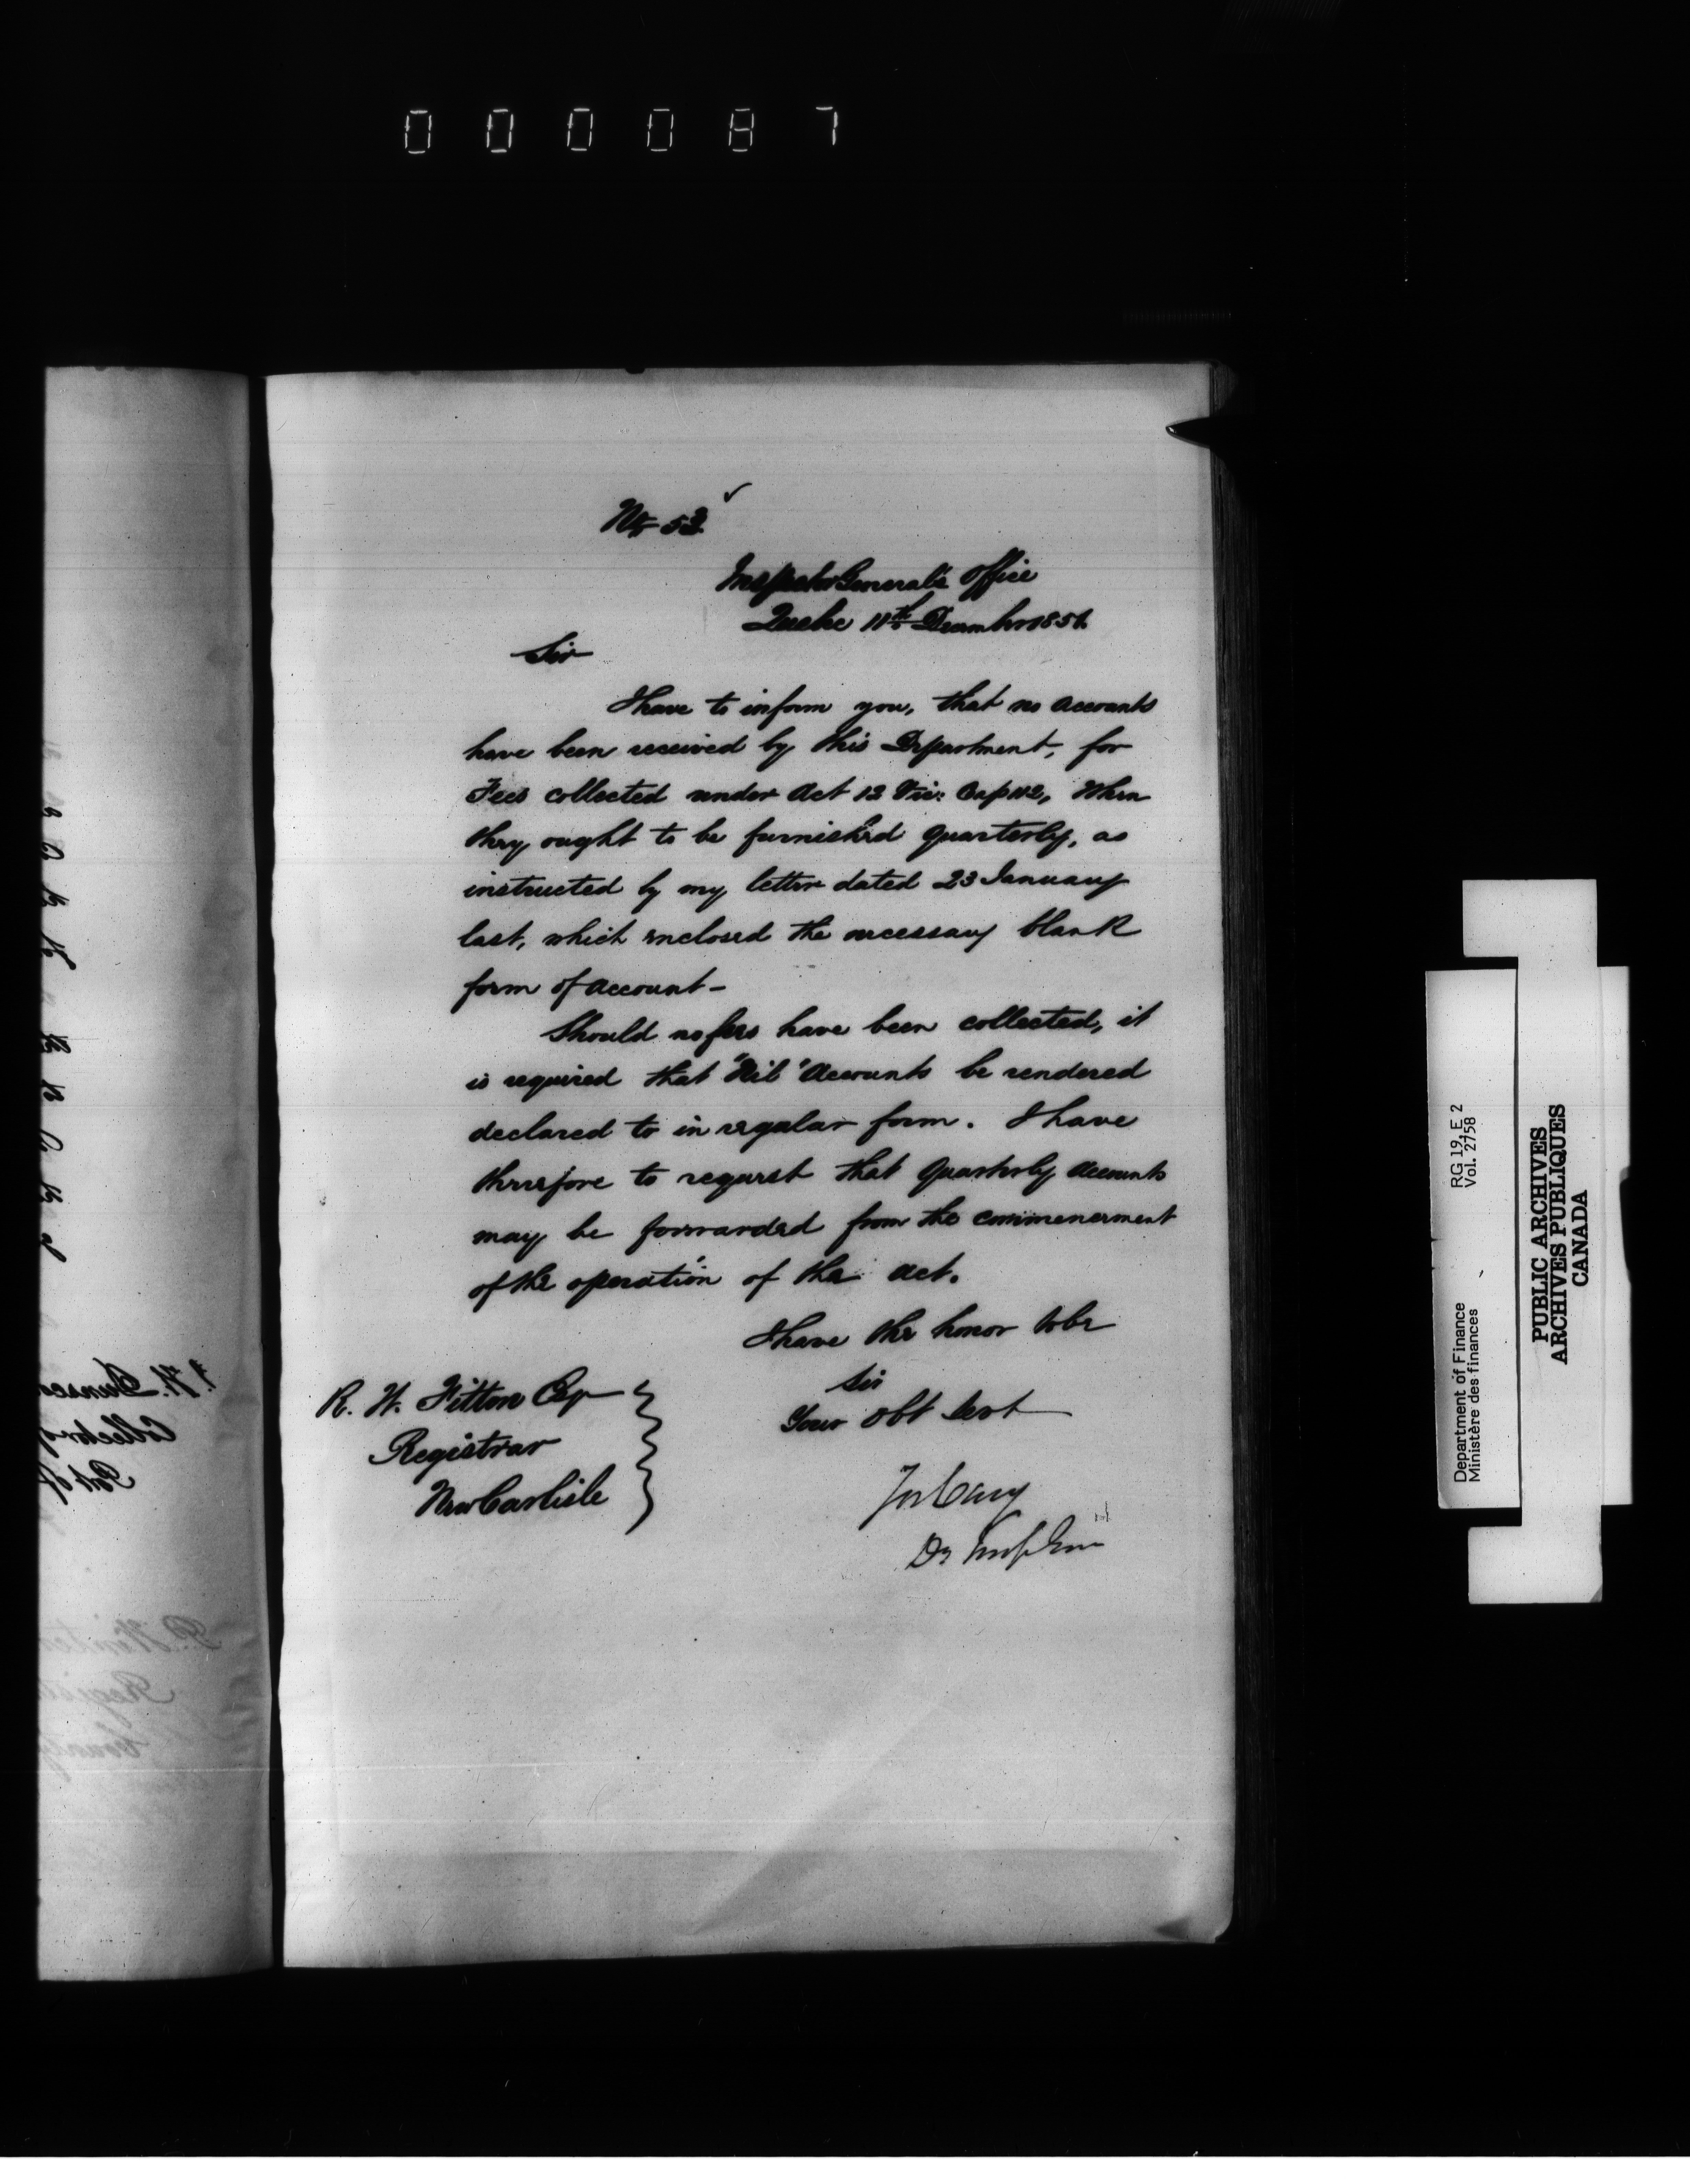 000087
No 53
Inspector General's Office
Quebec 11th December 1851.
Sir
I have to inform you, that no accounts
have been received by this Department, for
Fees collected under Act 12 Vic: Cap 112, When
they ought to be furnished quarterly, as
instructed by my letter dated 23 January
last, which enclosed the necessary blank
form of account -
Should no fees have been collected, it
is required that "Nil" Accounts be rendered
declared to in regular form. I have
therefore to request that Quarterly Accounts
may be forwarded from the commencement
of the operation of the Act.
I have the honor to be
Sir
Your obt Servt
Jos Cary
R. W. Fitton Esqr
Registrar
New Carlisle
Department of Finance RG 19, E 2
Ministère des finances Vol. 2758
PUBLIC ARCHIVES
ARCHIVES PUBLIQUES
CANADA